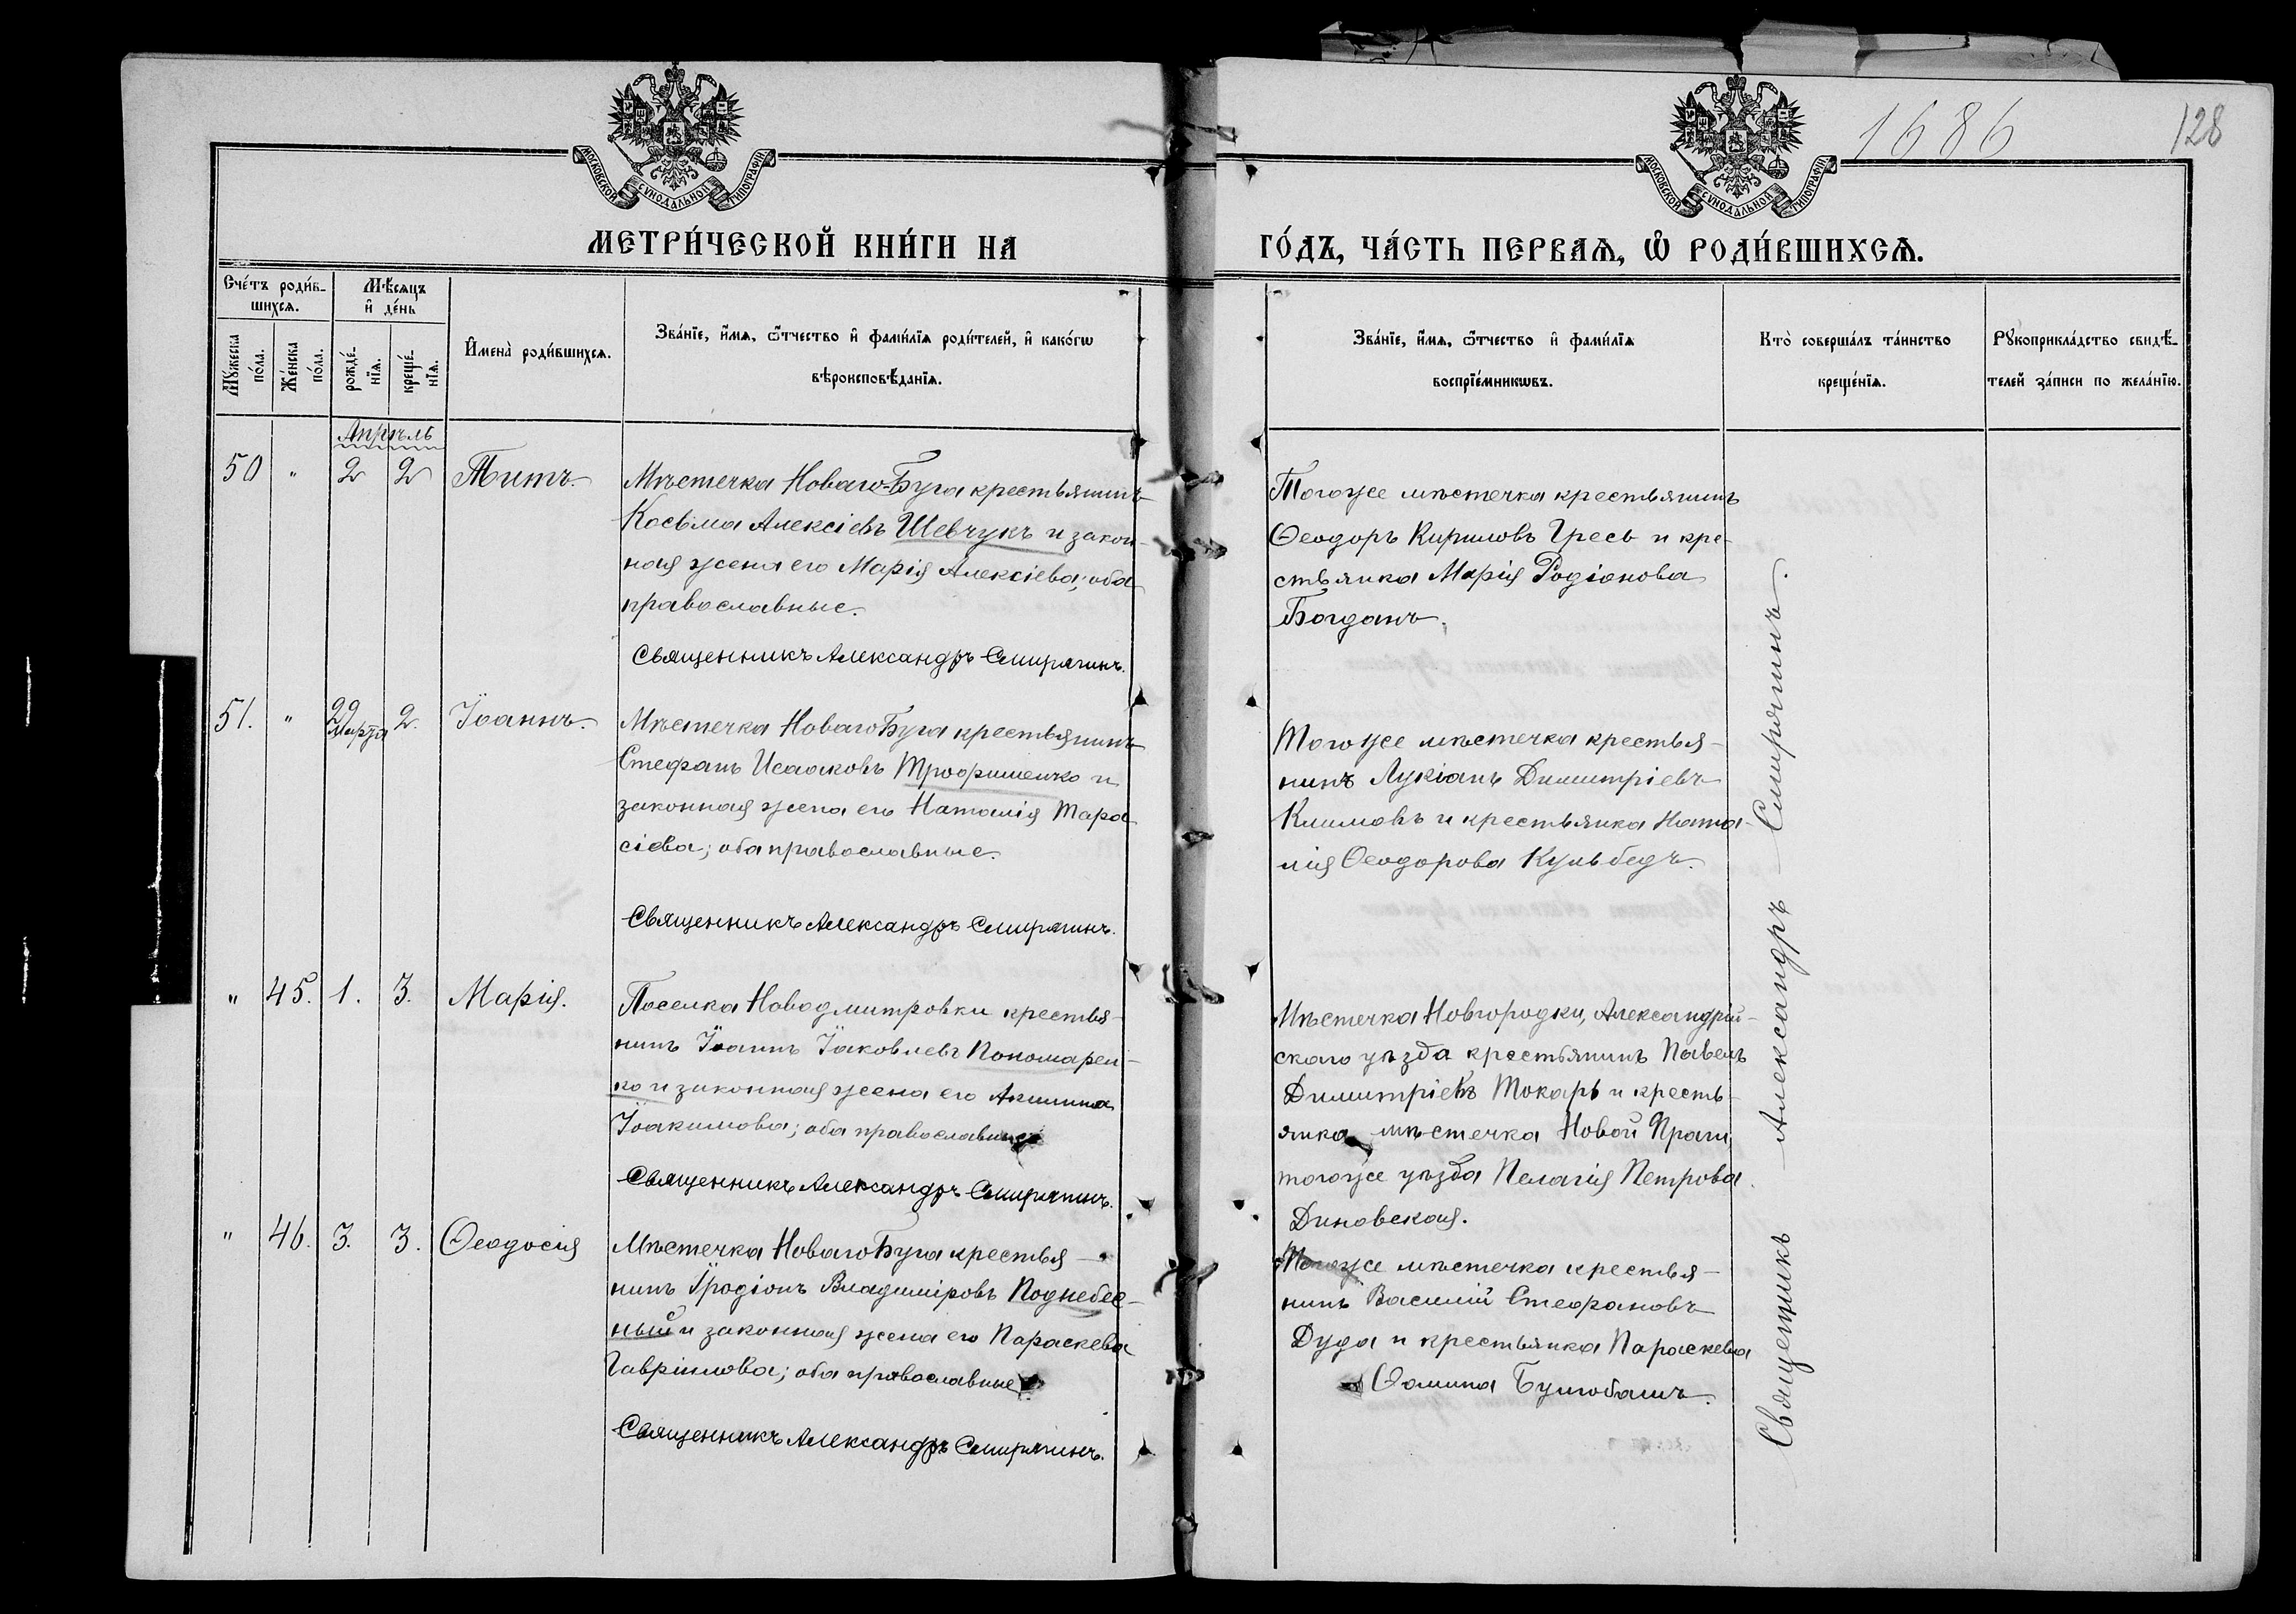 1686
128
МОСКОВСКОЙ СѴНОДАЛЬНОЙ ТИПОГРАФІИ
МОСКОВСКОЙ СѴНОДАЛЬНОЙ ТИПОГРАФІИ
МЕТРИ́ЧЕСКОЙ КНИ́ГИ НА
ГО́ДЪ, ЧА́СТЬ ПЕРВАѦ, Ѡ҆ РОДИ́ВШИХСѦ.
Сче́тъ роди́в-
шихсѧ.
Мѣ́сѧцъ
и҆ де́нь
Мꙋ́жеска
по́ла.
Же́нска
по́ла.
рожде́-
нїѧ.
креще́-
нїѧ.
И҆мена̀ роди́вшихсѧ.
Зва́нїе, и҆́мѧ, ѻ҆́тчество и҆ фами́лїѧ роди́телей, и҆ како́гѡ
вѣроисповѣ́данїѧ.
Зва́нїе, и҆́мѧ, ѻ҆́тчество и҆ фами́лїѧ
воспрїе́мникѡвъ.
Кто̀ соверша́лъ та́инство
креще́нїѧ.
Рꙋкоприкла́дство свидѣ́-
телей за́писи по жела́нїю.
Апрѣль
50 " 2 2 Титъ.
Мѣстечка Новаго-Буга крестьянинъ
Косьма Алексіевъ Шевчукъ и закон-
ная жена его Марія Алексіева; оба
православные.
Священникъ Александръ Смирягинъ.
Тогоже мѣстечка крестьянинъ
Ѳеодоръ Кириловъ Гресь и кре-
стьянка Марія Родіонова
Богданъ.
51. " 29 Марта 2. Іоаннъ.
Мѣстечка Новаго Буга крестьянинъ
Стефанъ Исааковъ Трофименко и
законная жена его Наталія Тара-
сіева; оба православные.
Священникъ Александръ Смирягинъ.
Тогоже мѣстечка крестья-
нинъ Лукіанъ Димитріевъ
Климовъ и крестьянка Ната-
лія Ѳеодорова Кульбедъ.
" 45. 1. 3. Марія.
Поселка Новодмитровки крестья-
нинъ Іоаннъ Іаковлевъ Пономарен-
ко и законная жена его Акилина
Іоакимова; оба православные.
Священникъ Александръ Смирягинъ.
Мѣстечка Новгородки, Александрій-
скаго уѣзда крестьянинъ Павелъ
Димитріевъ Токарь и кресть-
янка мѣстечка Новой Праги
тогоже уѣзда Пелагія Петрова
Диновская.
" 46. 3. 3. Ѳеодосія
Мѣстечка Новаго Буга крестья-
нинъ Іродіонъ Владиміровъ Поднебес-
ный и законная жена его Параскева
Гавріилова; оба православные.
Священникъ Александръ Смирягинъ.
Тогоже мѣстечка крестья-
нинъ Василій Стефановъ
Дуда и крестьянка Параскева
Ѳомина Бушобашъ.
Священникъ Александръ Смирягинъ.